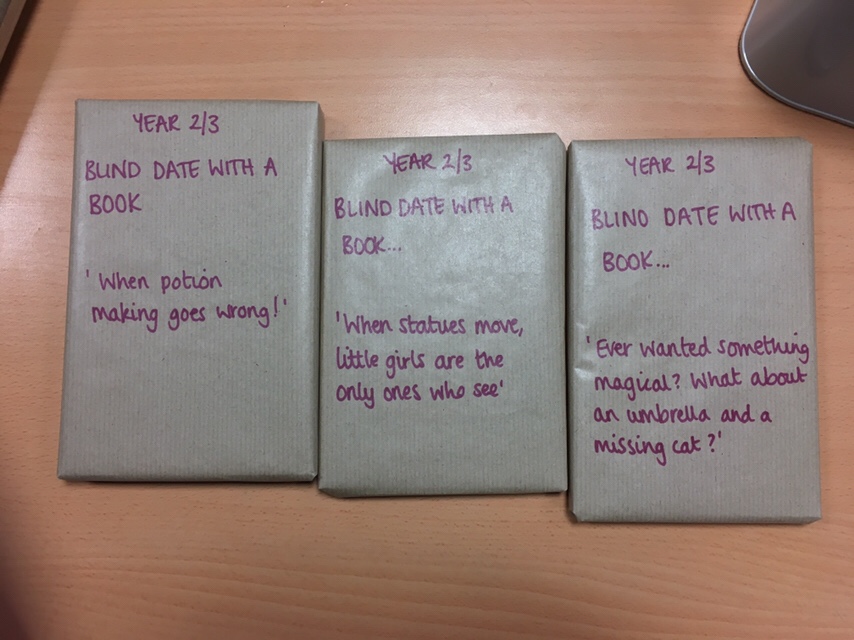 YEAR 2/3
BLIND DATE WITH A
BOOK
'When potion
making goes wrong!'
YEAR 2/3
BLIND DATE WITH A
BOOK...
'When statues move,
little girls are the
only ones who see'
YEAR 2/3
BLIND DATE WITH A
BOOK...
'Ever wanted something
magical? What about
an umbrella and a
missing cat?'